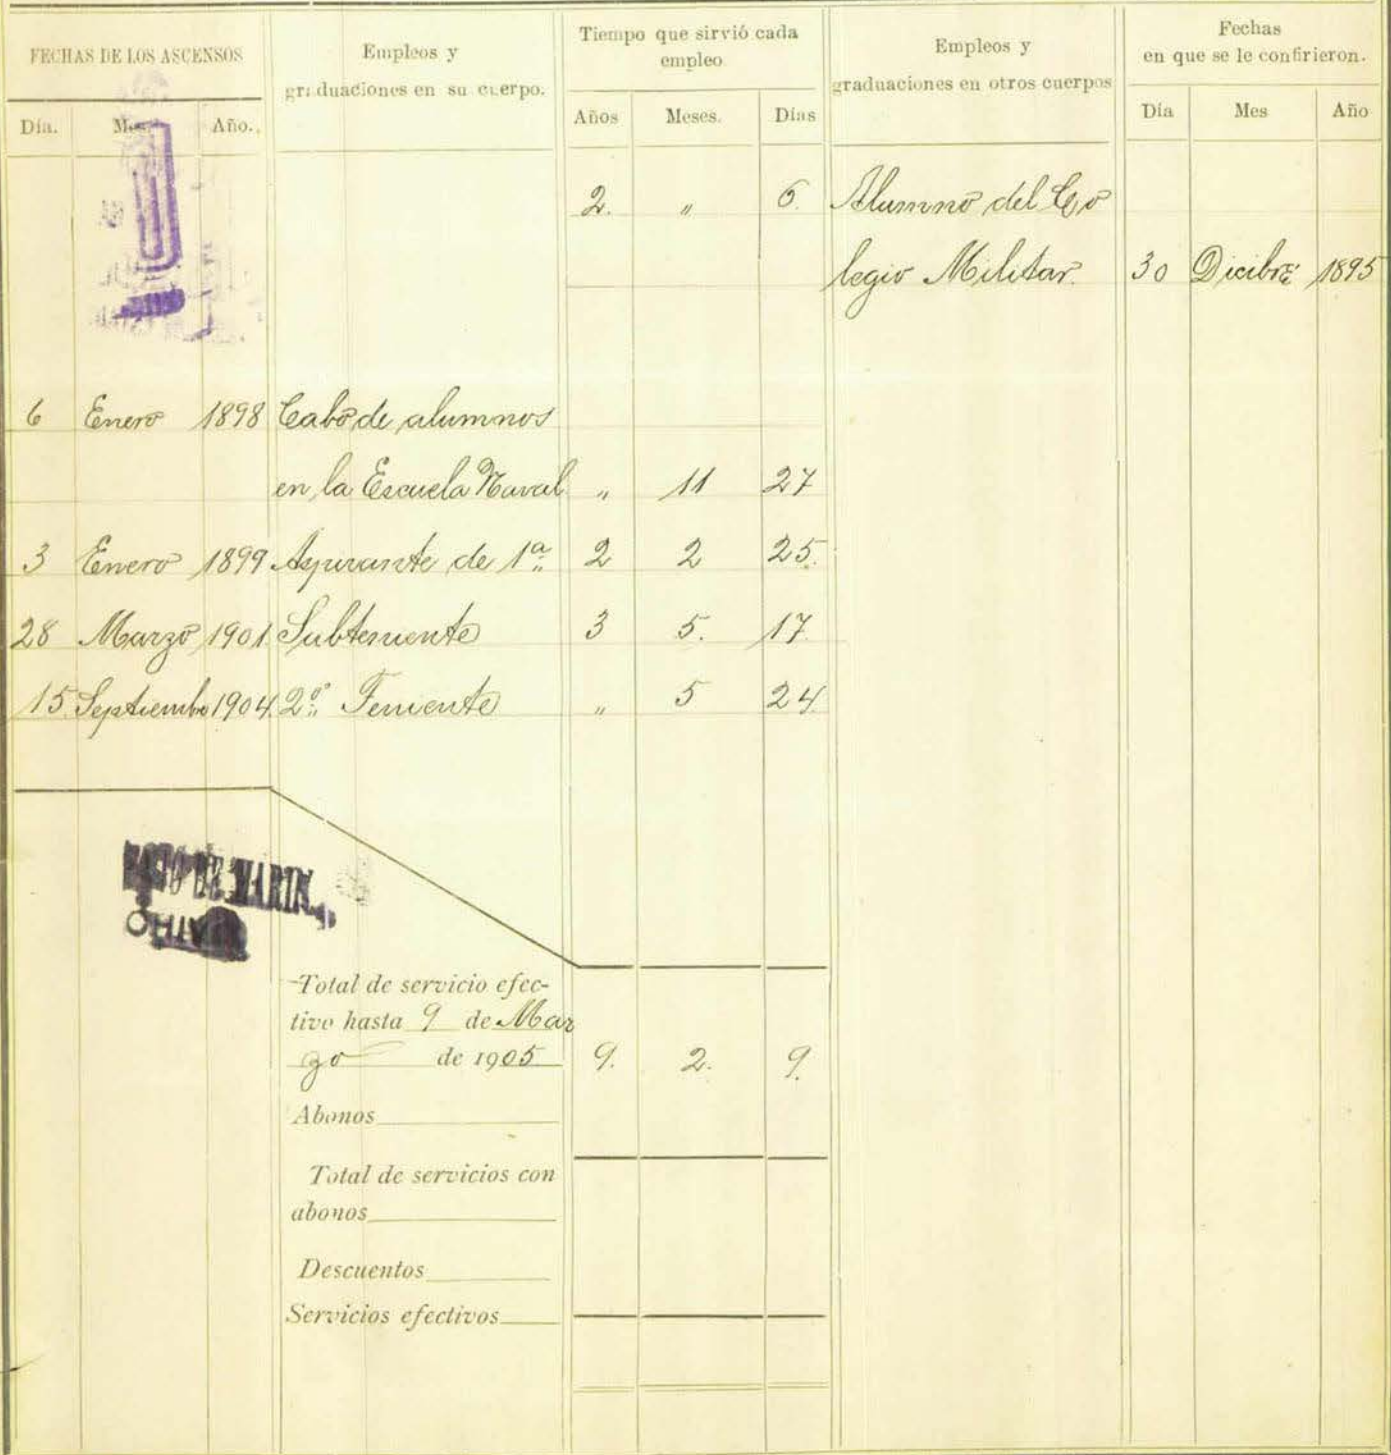 FECHAS DE LOS ASCENSOS
Empleos y
graduaciones en su cuerpo.
Tiempo que sirvió cada
empleo
Empleos y
graduaciones en otros cuerpos
Fechas
en que se le confirieron.
Día. Mes Año. Años Meses. Días Día Mes Año
2. " 6. Alumno del Co
legio Militar. 30 Dicibre 1895
6 Enero 1898 Cabo de alumnos
en la Escuela Naval " 11 27
3 Enero 1899 Aspirante de 1ª 2 2 25.
28 Marzo 1901 Subteniente 3 5. 17.
15. Septiembe 1904. 2º Teniente " 5 24.
DE MARINA
Total de servicio efec-
tivo hasta 9 de Mar
zo de 1905 9. 2. 9.
Abonos
Total de servicios con
abonos
Descuentos
Servicios efectivos